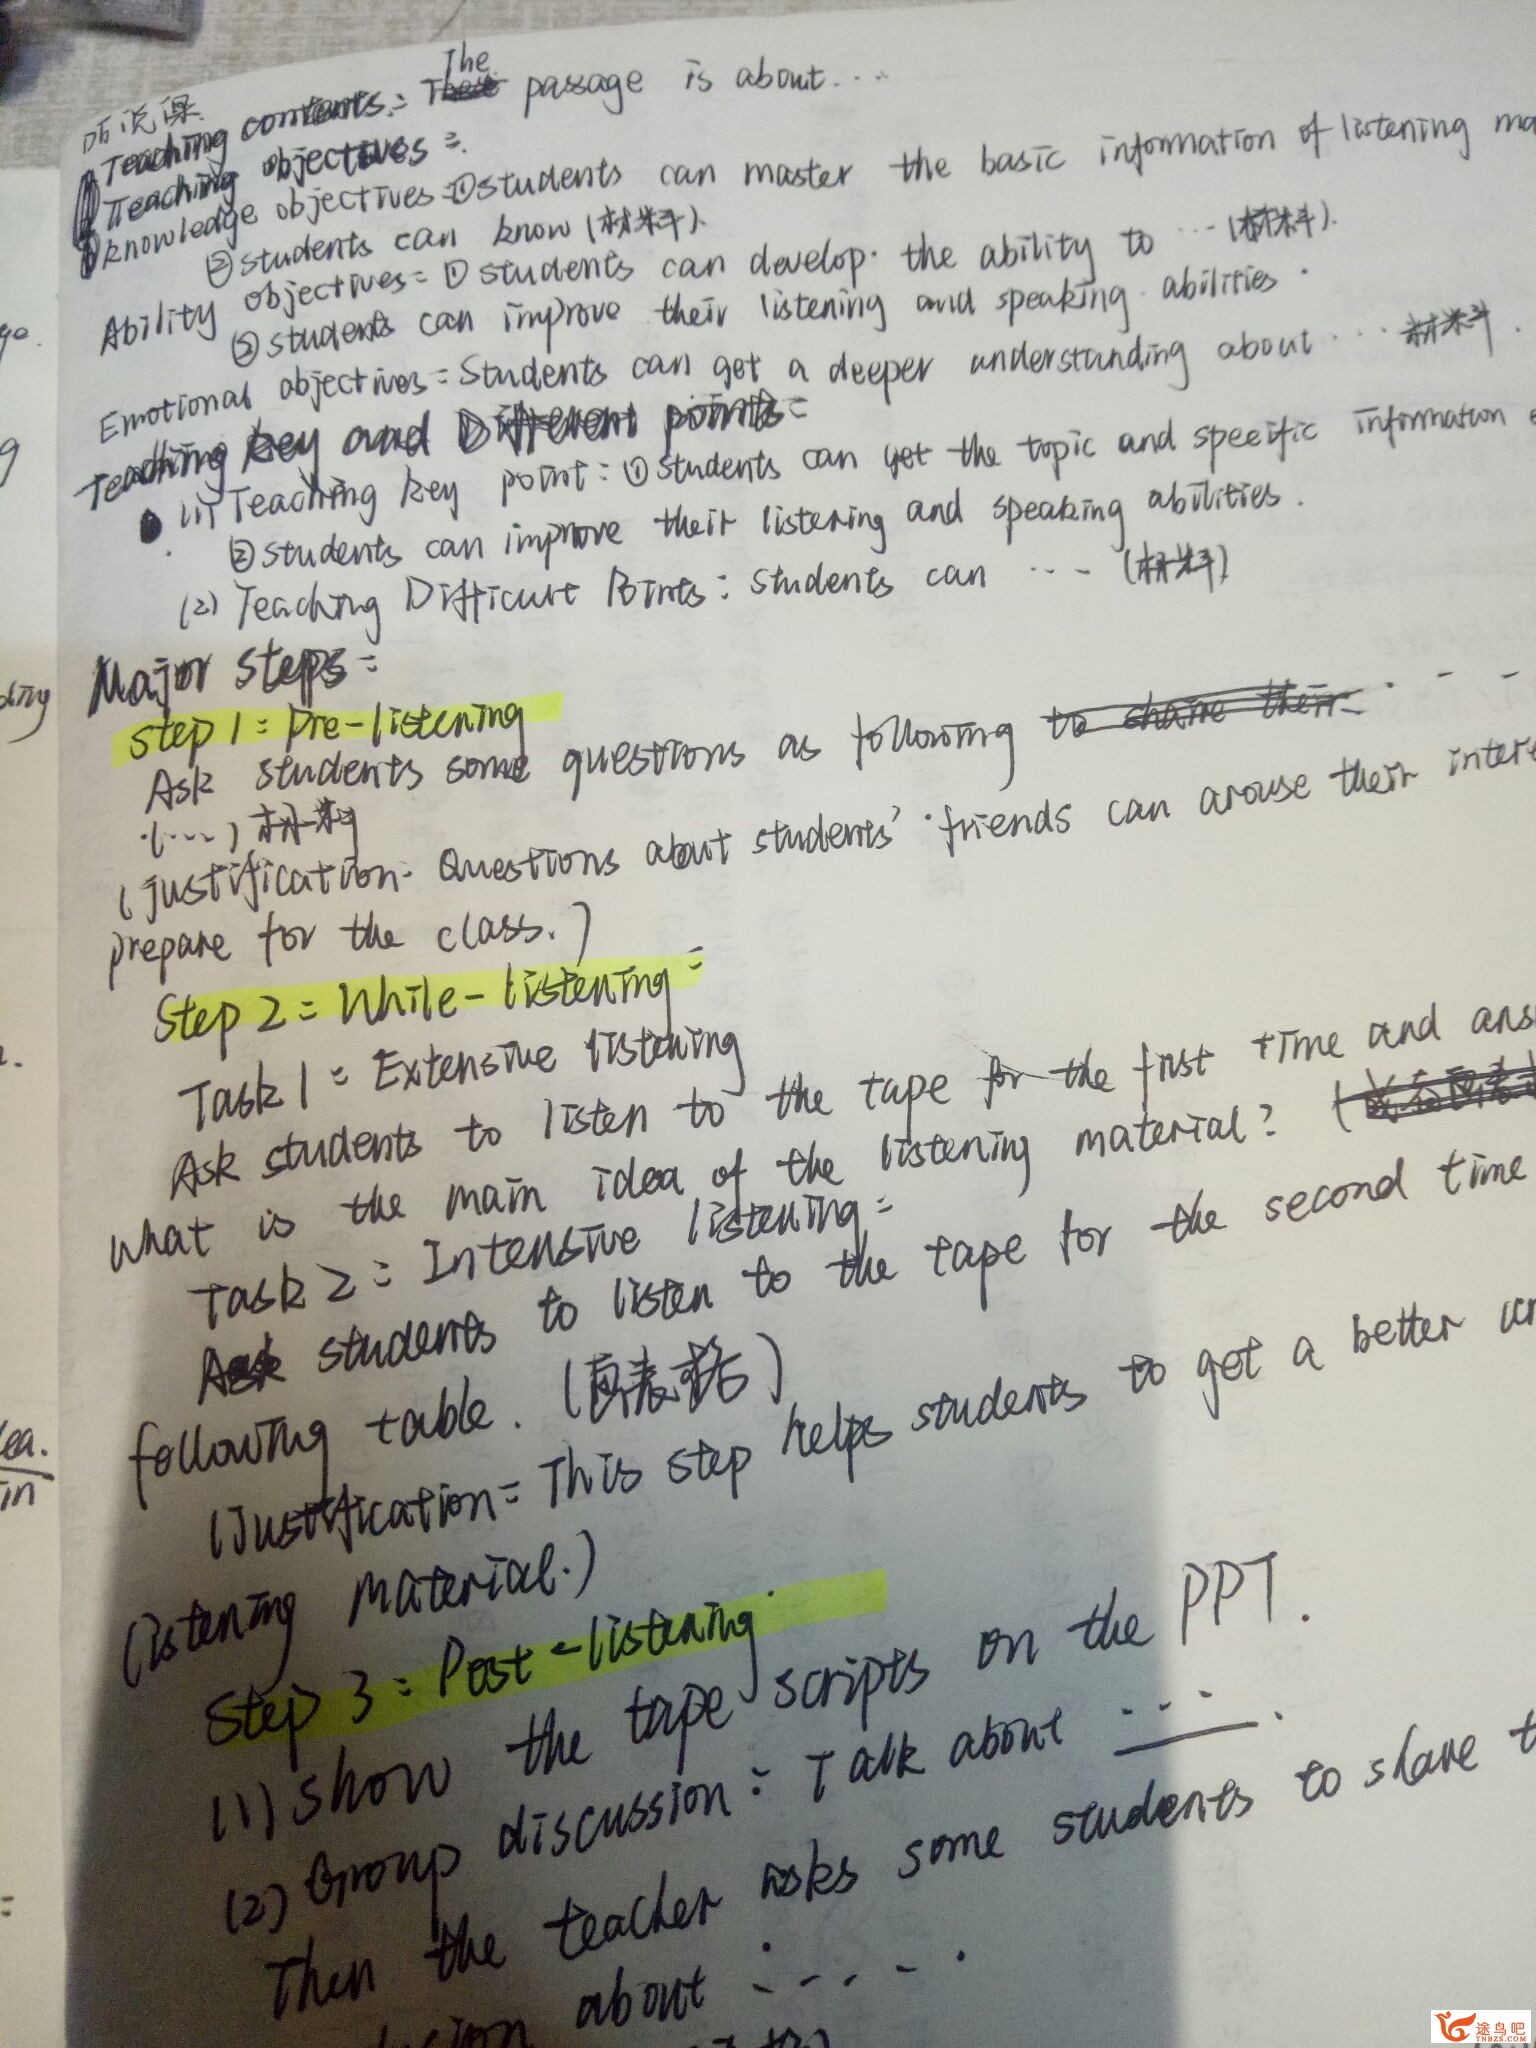 听说课
Teaching contents: The passage is about...
Teaching objectives:
knowledge objectives: ①students can master the basic information of listening ma
②students can know (材料).
Ability objectives: ①students can develop the ability to ... (材料).
②students can improve their listening and speaking abilities.
Emotional objectives: Students can get a deeper understanding about ... 材料.
Teaching key and Different points:
(1) Teaching key point: ①students can get the topic and speeific information
②students can improve their listening and speaking abilities.
(2) Teaching Difficult Points: students can ... (材料)
Major steps:
Step 1: Pre-listening
Ask students some questions as following to share their ...
(...) 材料
(justification. Questions about students' friends can arouse their intere
prepare for the class.)
Step 2: While-listening:
Task 1: Extensive listening
Ask students to listen to the tape for the first time and ans
what is the main idea of the listening material? (
Task 2: Intensive listening:
Ask students to listen to the tape for the second time
following table. (画表格)
(Justification: This step helps students to get a better un
listening material.)
Step 3: Post-listening
(1) show the tape scripts on the PPT.
(2) Group discussion: Talk about ....
Then the teacher asks some students to share t
about ......
ge.
g
ding
ea.
in
途鸟吧
TNBZS.COM